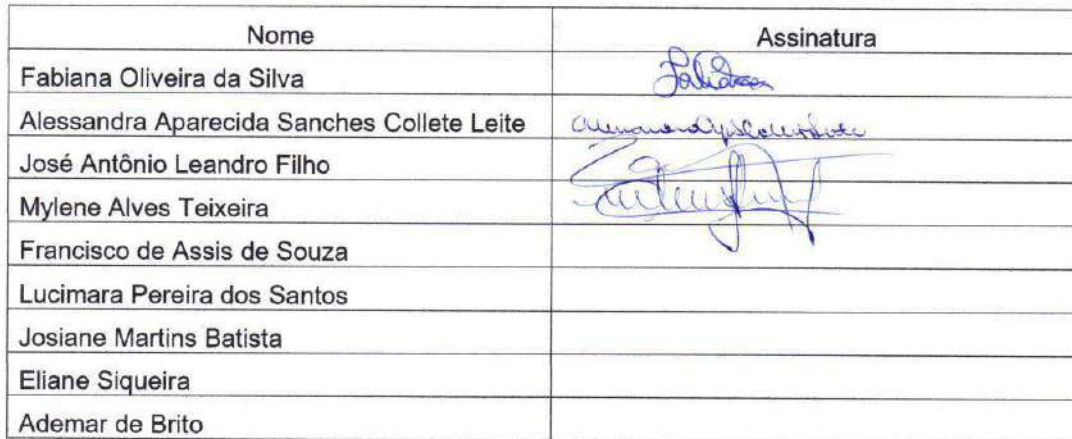 Nome Assinatura
Fabiana Oliveira da Silva
Alessandra Aparecida Sanches Collete Leite
José Antônio Leandro Filho
Mylene Alves Teixeira
Francisco de Assis de Souza
Lucimara Pereira dos Santos
Josiane Martins Batista
Eliane Siqueira
Ademar de Brito